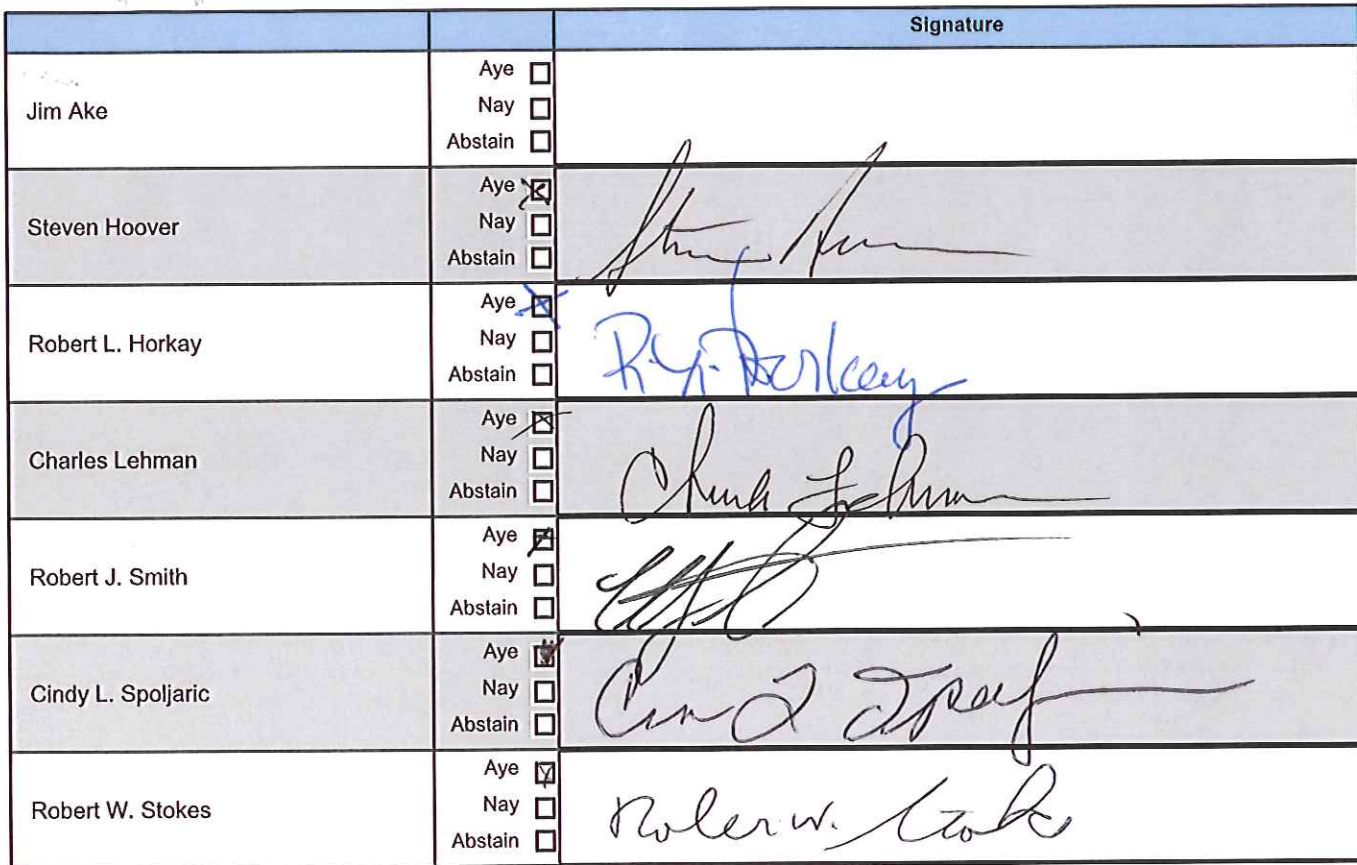 Signature
Jim Ake
Aye ☐
Nay ☐
Abstain ☐
Steven Hoover
Aye ☒
Nay ☐
Abstain ☐
Robert L. Horkay
Aye ☒
Nay ☐
Abstain ☐
R. L. Horkay
Charles Lehman
Aye ☒
Nay ☐
Abstain ☐
Chuck Lehman
Robert J. Smith
Aye ☒
Nay ☐
Abstain ☐
Cindy L. Spoljaric
Aye ☒
Nay ☐
Abstain ☐
Robert W. Stokes
Aye ☒
Nay ☐
Abstain ☐
Robert W. Stokes